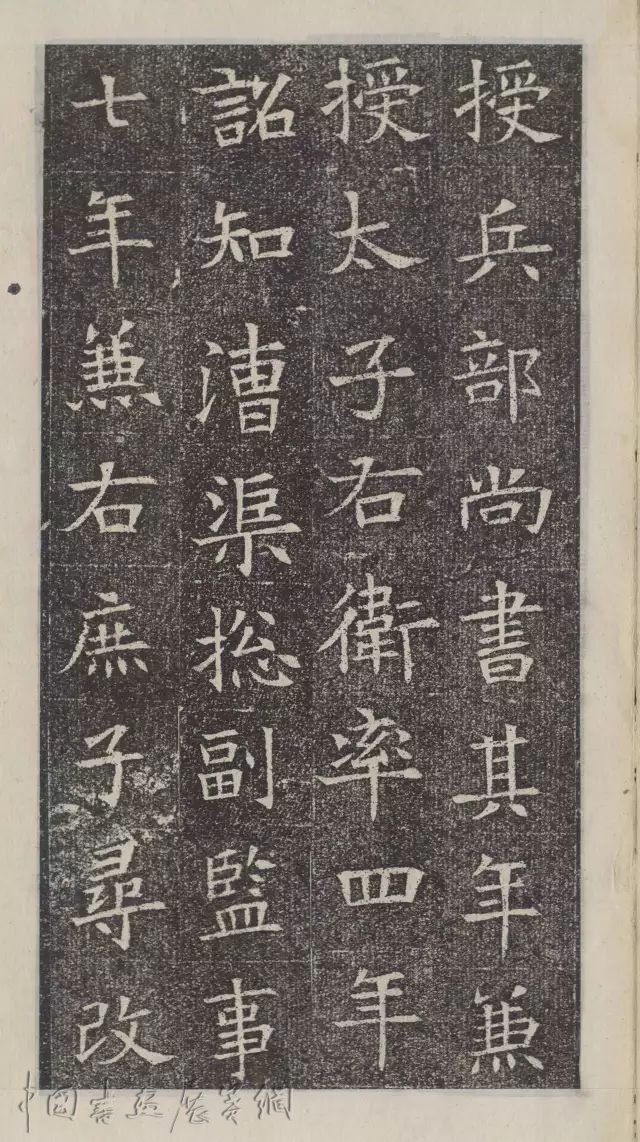 授兵部尚書其年兼
授太子右衛率四年
詔知漕渠揔副監事
七年兼右庶子尋改
中国書法展賽網